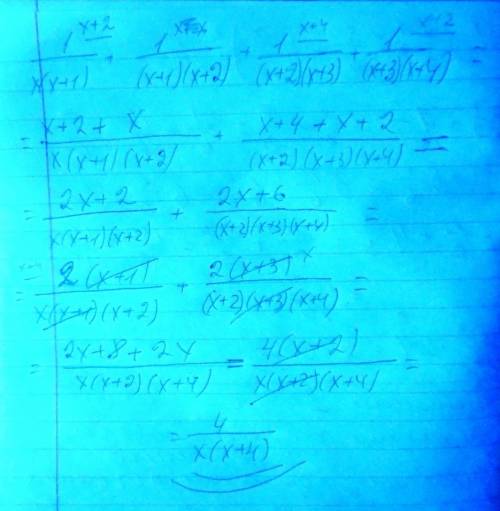 1^{x+2}/x(x+1) + 1^{x}/(x+1)(x+2) + 1^{x+4}/(x+2)(x+3) + 1^{x+2}/(x+3)(x+4) =
= x+2+x/x(x+1)(x+2) + x+4+x+2/(x+2)(x+3)(x+4) =
= 2x+2/x(x+1)(x+2) + 2x+6/(x+2)(x+3)(x+4) =
= 2(x+1)/x(x+1)(x+2) + 2(x+3)^{x}/(x+2)(x+3)(x+4) =
= 2x+8+2x/x(x+2)(x+4) = 4(x+2)/x(x+2)(x+4) =
= 4/x(x+4)